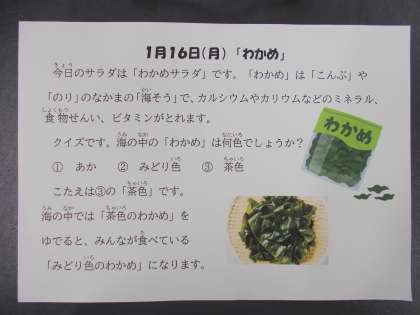 1月16日(月)「わかめ」
今日のサラダは「わかめサラダ」です。「わかめ」は「こんぶ」や
「のり」のなかまの「海そう」で、カルシウムやカリウムなどのミネラル、
食物せんい、ビタミンがとれます。
クイズです。海の中の「わかめ」は何色でしょうか?
① あか ② みどり色 ③ 茶色
こたえは③の「茶色」です。
海の中では「茶色のわかめ」を
ゆでると、みんなが食べている
「みどり色のわかめ」になります。
わかめ